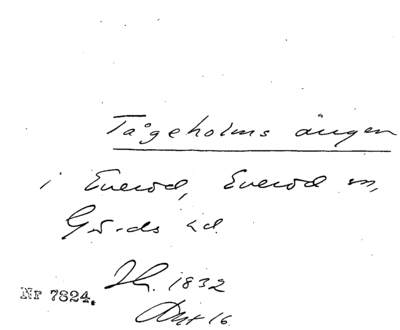 Tågeholms ängen
i Everöd, Everöd sn,
Gärds hd.
Sk. 1832
Akt 16
Nr 7824.